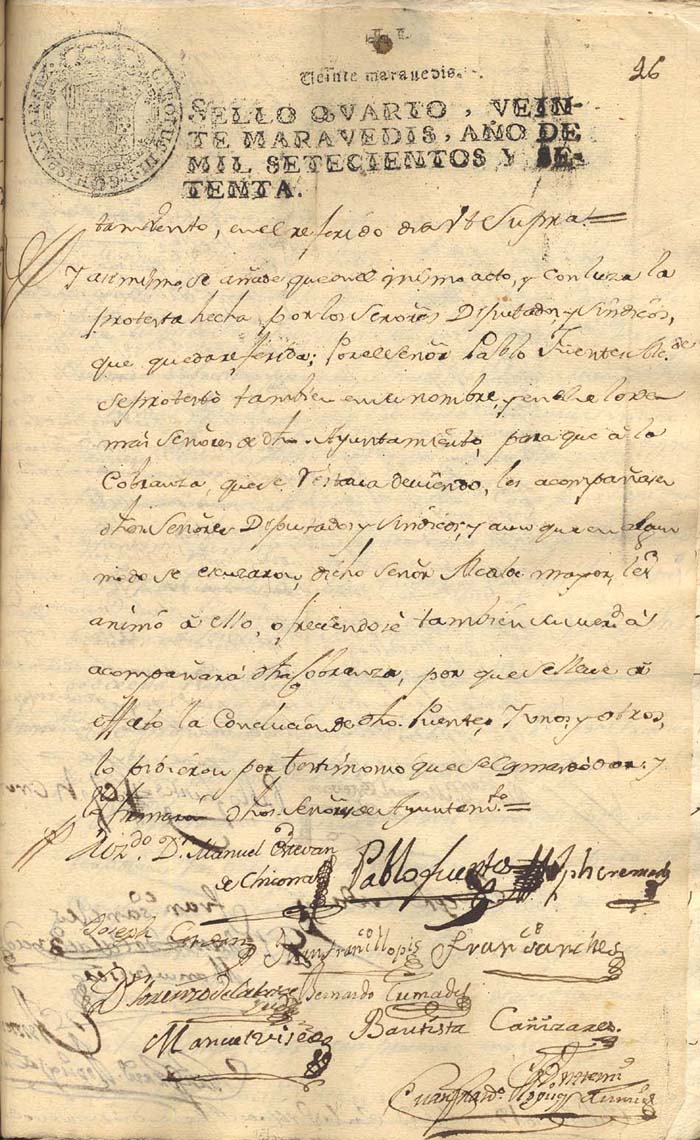 26
Veinte maravedis.
SELLO QVARTO, VEIN-
TE MARAVEDIS, AÑO DE
MIL SETECIENTOS Y SE-
TENTA.
tamiento, en el referido dia Vt Supra =
Y asimismo, se añade que en el mismo acto, y con luza la
protesta hecha por los Señores Diputados, y Sindicos,
que queda referida; Por el Señor Pablo Fuentes Alc.de
se protestó tambien en su nombre, y en el de los de
mas Señores de dho. Ayuntamiento, para que à la
Cobranza, que se restava deviendo, les acompañasen
dhos Señores Diputados y Sindicos, y aunque en algun
modo se escuzaron, dicho Señor Alcalde mayor, les
animó à ello, ofreciendose tambien su mer.d à
acompañar à dha Cobranza, por que se lleve à
effeto la Conclucion de dho. Puente, Y unos, y otros,
lo pidieron por testimonio que se les mandó dar: y
lo firmaron dhos Señores de Ayuntam.to =
D.r Manuel Estevan
de Chicorra
Pablo fuentes
Joseph
Juan fran.co llopis
Fran.co Sanches
D. Lorenzo de la torre
Bernardo
Manuel
Bautista Cañizares.